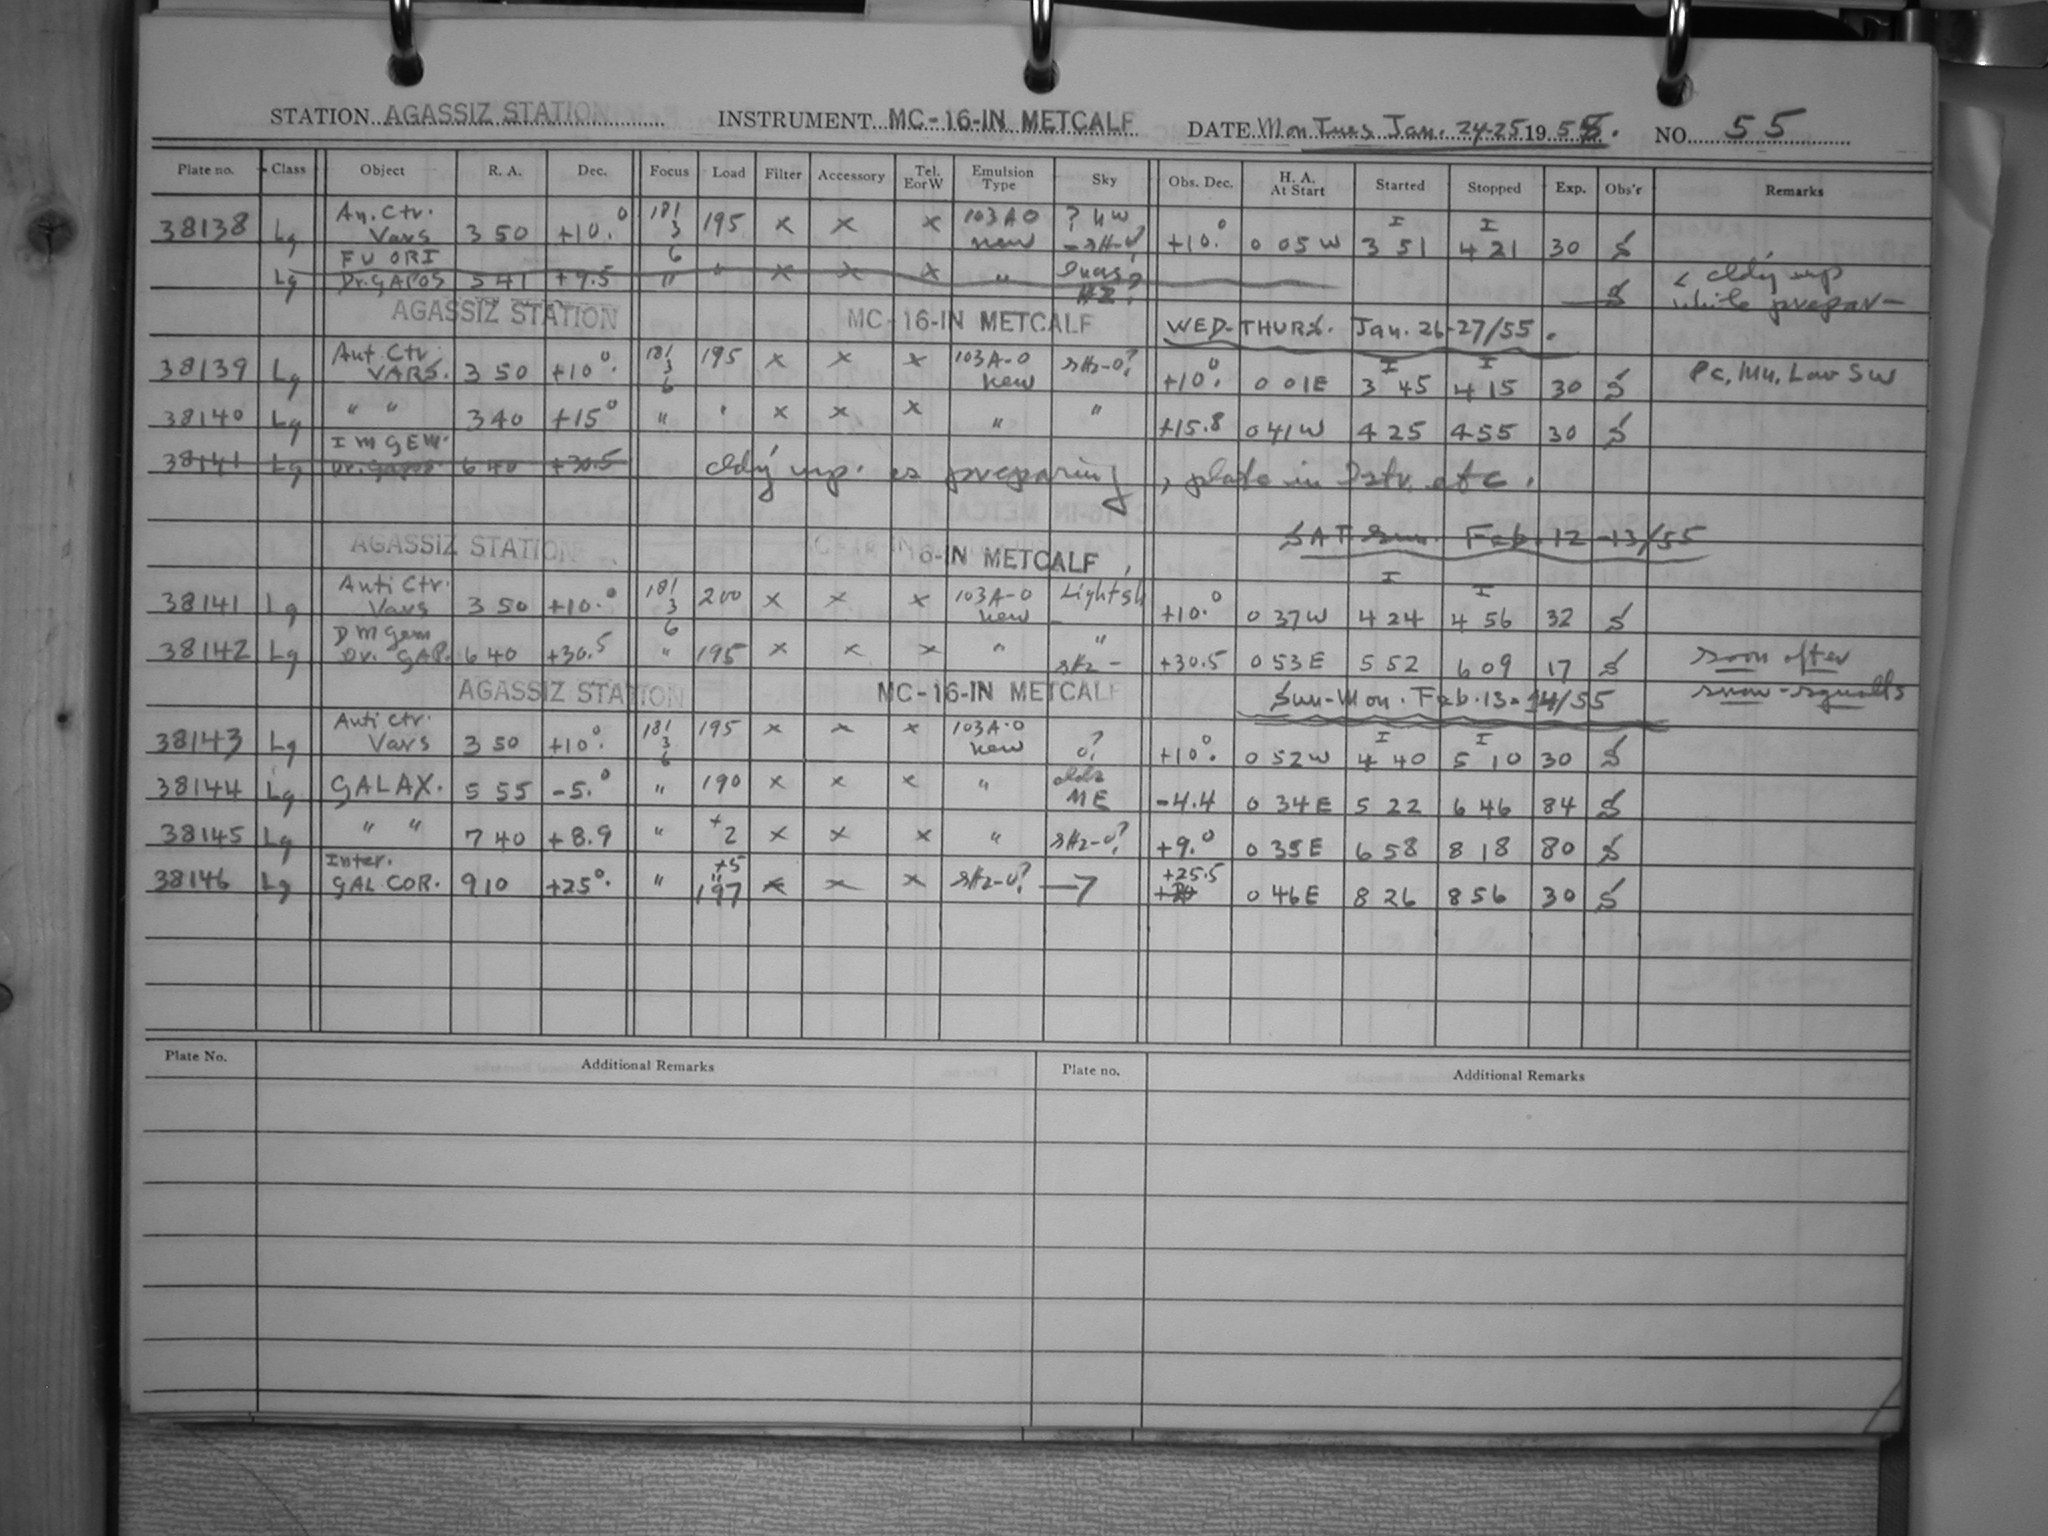 STATION AGASSIZ STATION INSTRUMENT MC-16-IN METCALF DATE Mon Tues Jan. 24-25 1955. NO. 55
Plate no. Class Object R. A. Dec. Focus Load Filter Accessory Tel. EorW Emulsion Type Sky Obs. Dec. H. A. At Start Started Stopped Exp. Obs'r Remarks
38138 Lg An. Ctr. Vars 3 50 +10.0 181 3 6 195 × × × 103 A O new +10.0 0 05 W I 3 51 I 4 21 30 S
Lg FU ORI Dr. GAPOS 5 41 +9.5 " " × × × " S < cldy up while prepar-
AGASSIZ STATION MC-16-IN METCALF WED-THURS. Jan. 26-27/55.
38139 Lg Ant. Ctr. VARS. 3 50 +10.0 181 3 6 195 × × × 103A-O new sHz-0? +10.0 0 01E I 3 45 I 4 15 30 S Pc, Mn, Low SW
38140 Lg " " 3 40 +15° " ' × × × " " +15.8 0 41 W 4 25 4 55 30 S
38141 Lg IM GEM. Dr. Gapos 6 40 +30.5 cldy up. as preparing, plate in etc.
SAT Sun. Feb. 12-13/55
AGASSIZ STATION 16-IN METCALF
38141 Lg Anti Ctr. Vars 3 50 +10.0 181 3 6 200 × × × 103A-O new Light sh +10.0 0 37W I 4 24 I 4 56 32 S
38142 Lg DM Gem Dr. GAP. 6 40 +30.5 " 195 × × × " " sHz- +30.5 0 53 E 5 52 6 09 17 S soon after
AGASSIZ STATION MC-16-IN METCALF Sun-Mon. Feb. 13-14/55 snow-squalls
38143 Lg Anti Ctr. Vars 3 50 +10.0 181 3 6 195 × × × 103A-O new 0? +10.0 0 52W I 4 40 I 5 10 30 S
38144 Lg GALAX. 5 55 -5.0 " 190 × × × " clds NE -4.4 0 34 E 5 22 6 46 84 S
38145 Lg " " 7 40 +8.9 " +2 × × × " sHz-0? +9.0 0 35E 6 58 8 18 80 S
38146 Lg Inter. GAL COR. 9 10 +25°. " +5 " 197 × × × sHz-0? —7 +25.5 0 46E 8 26 8 56 30 S
Plate No. Additional Remarks Plate no. Additional Remarks